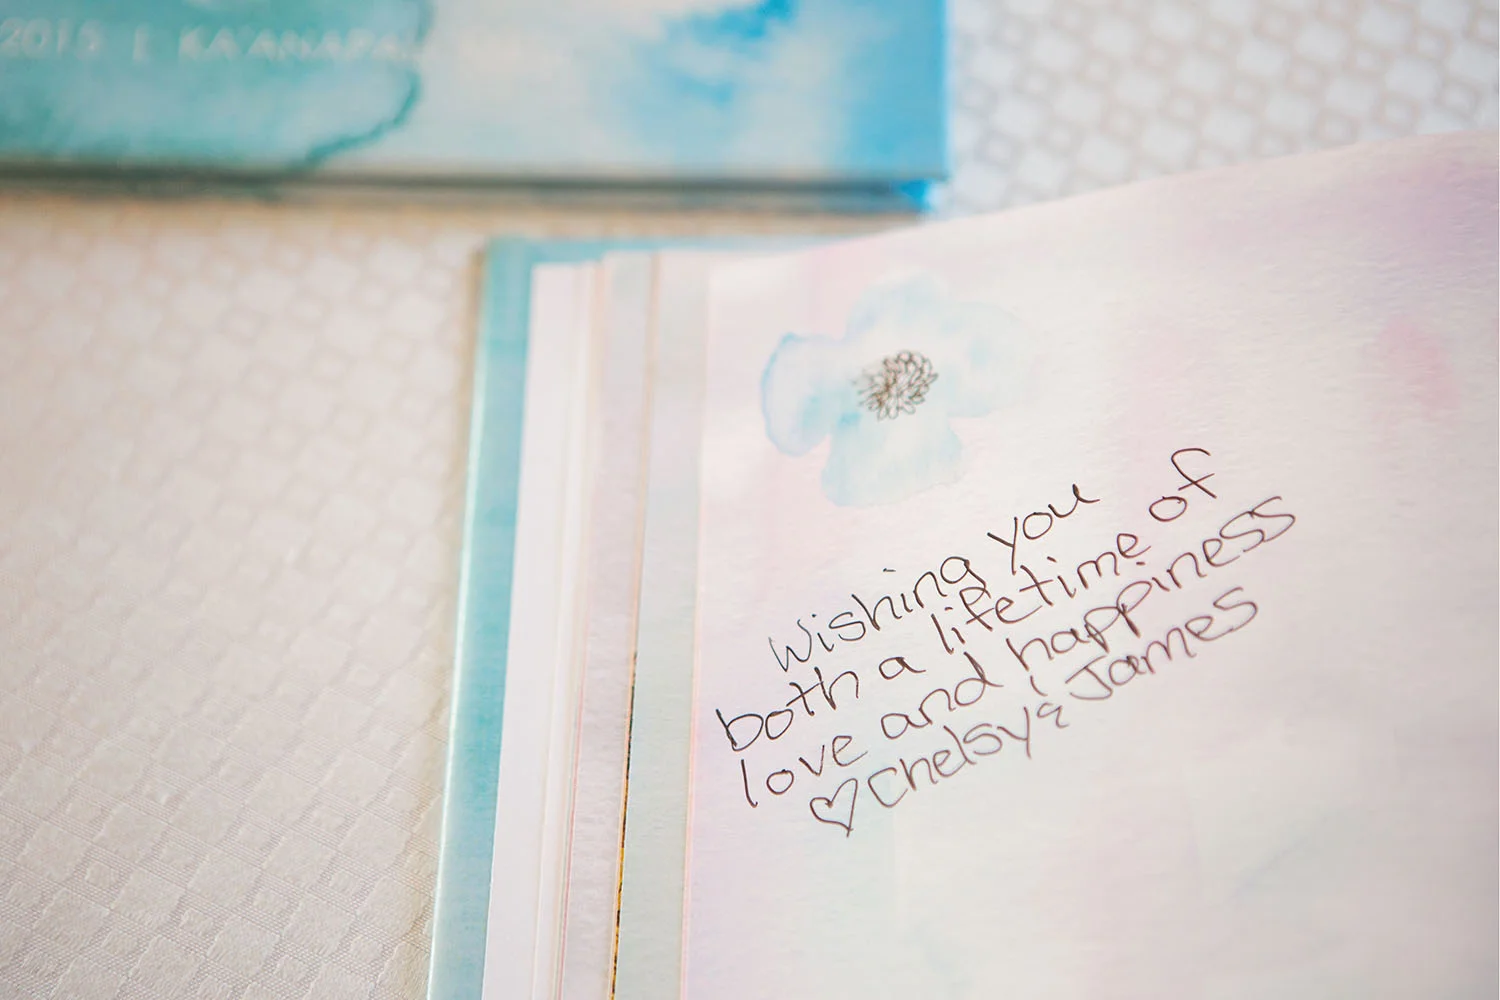 2015 | KA'ANAPALI
Wishing you
both a lifetime of
love and happiness
♡Chelsy & James